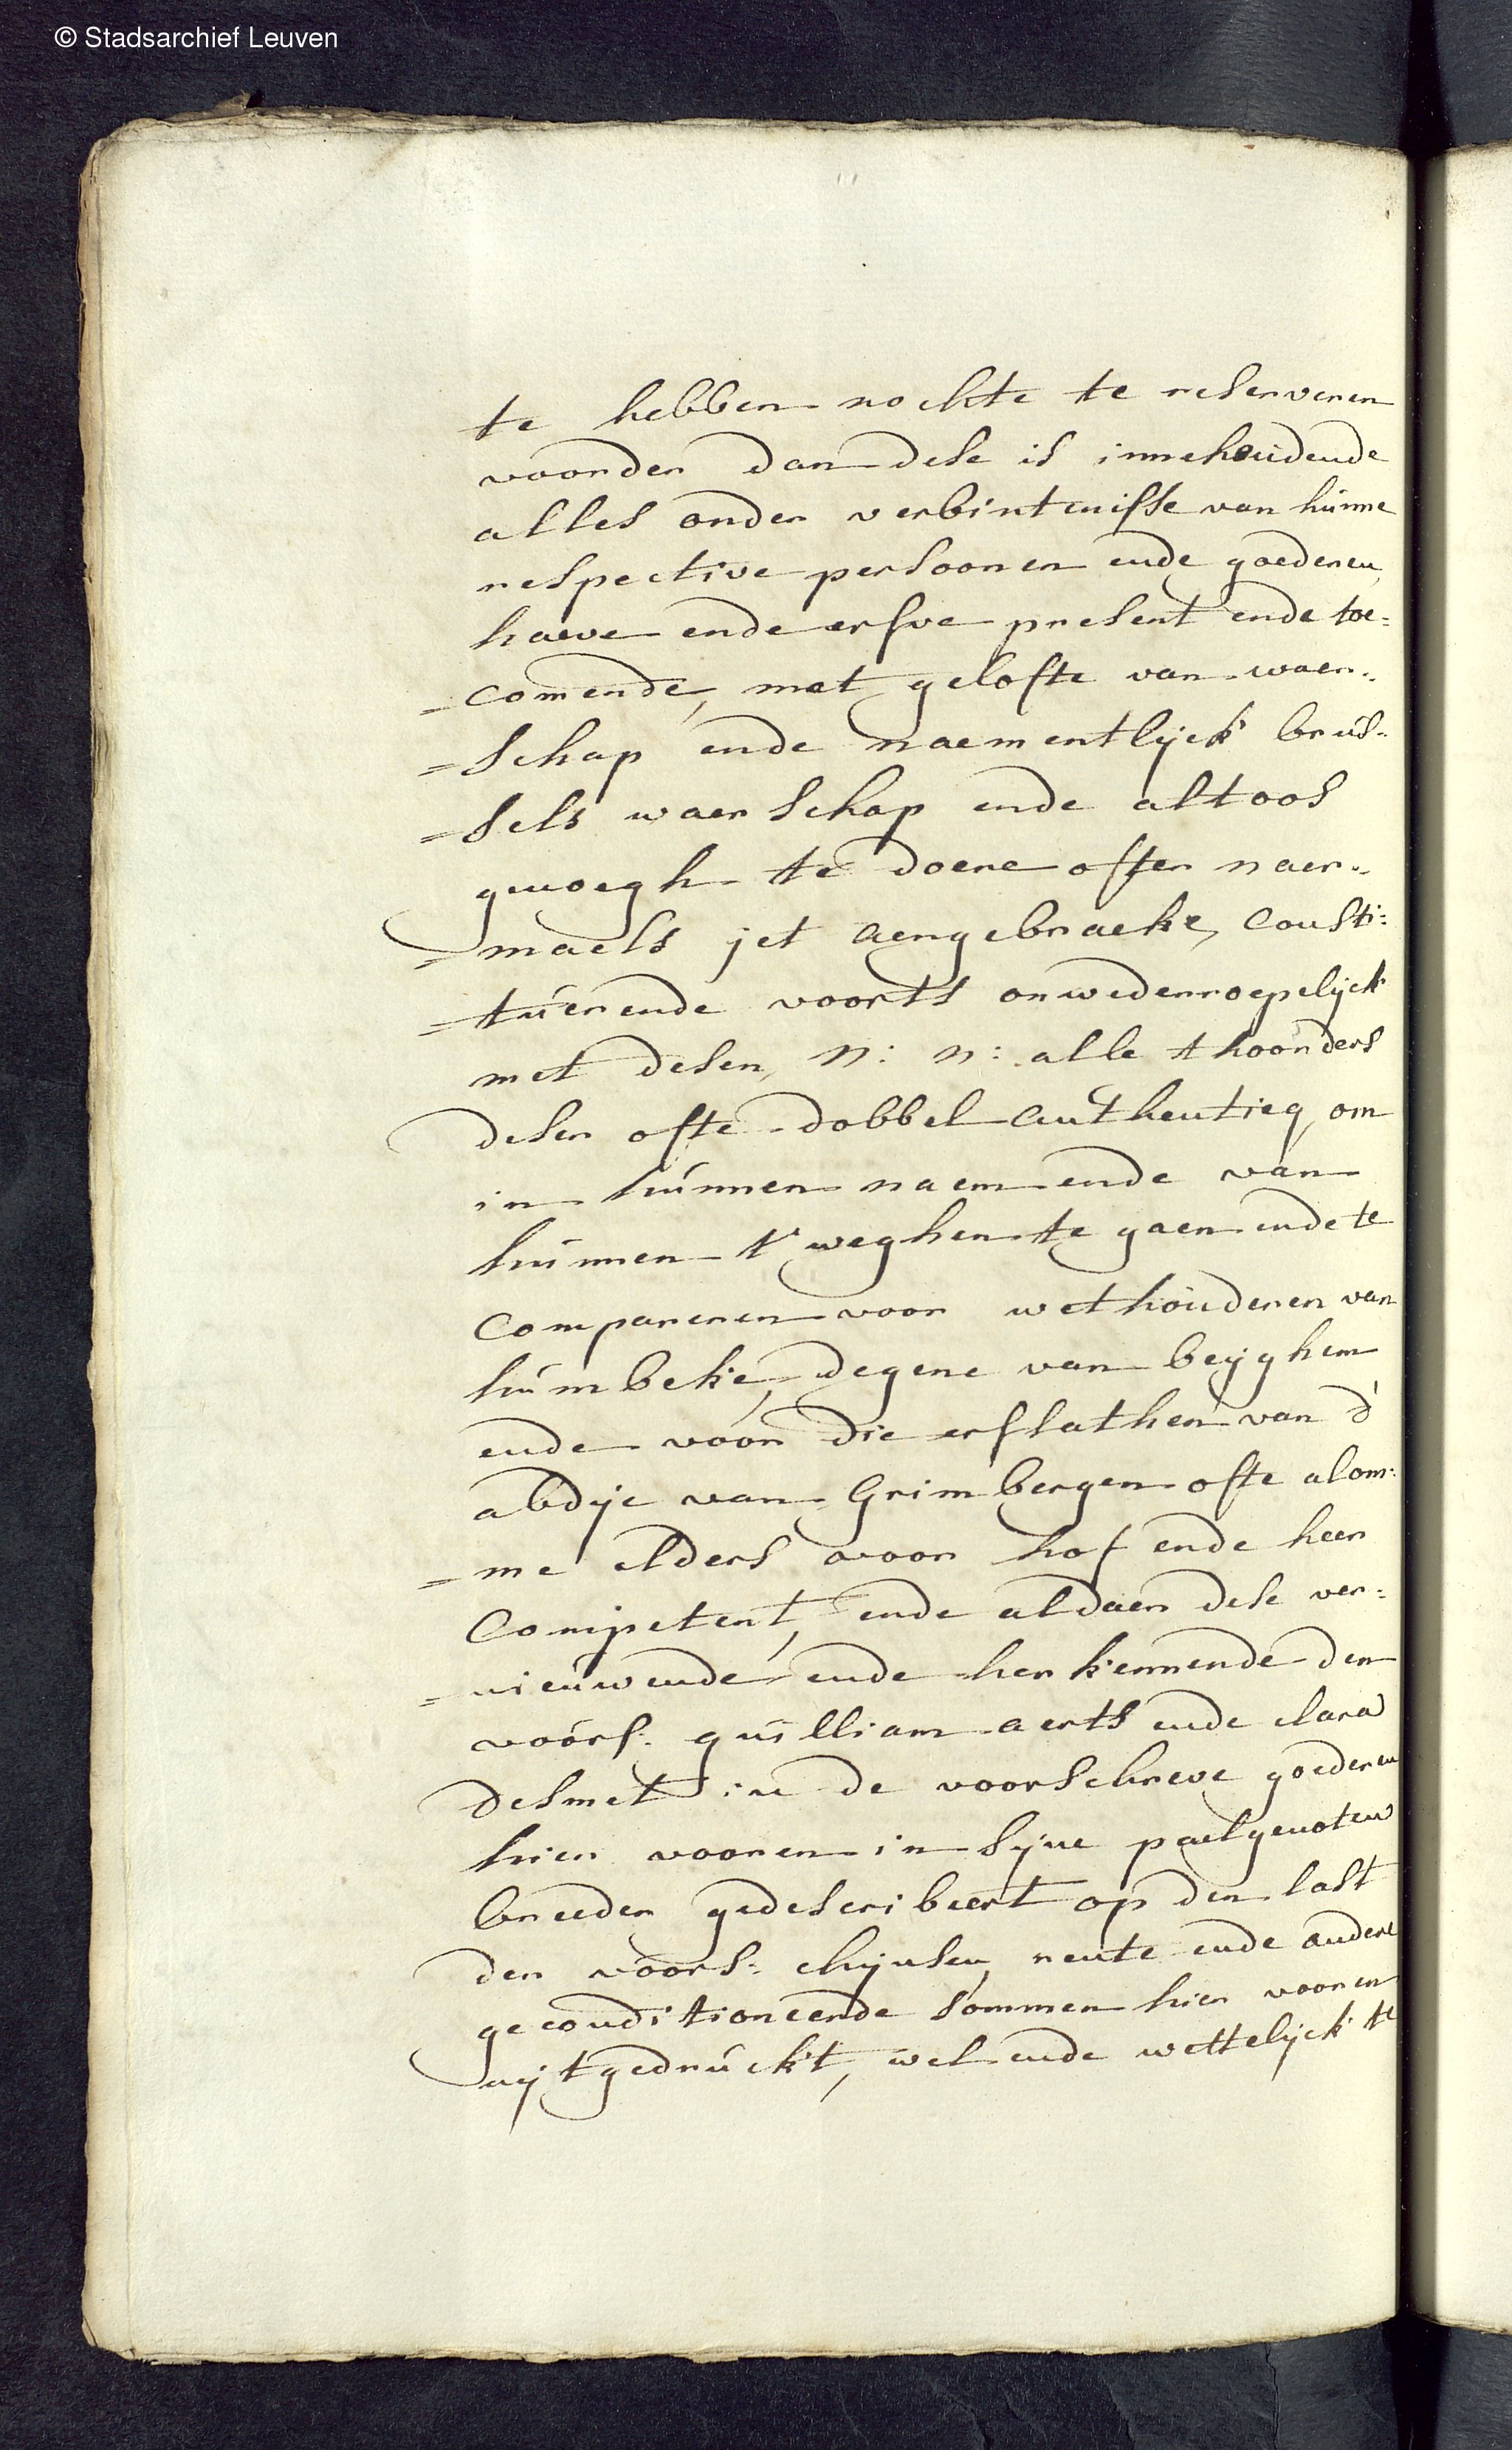 © Stadsarchief Leuven
te hebben nochte te reserveren
voorder dan dese is innehoudende
alles onder verbintenisse van hunne
respective persoonen ende goederen
haeve ende erfve present ende toe=
=comende, met gelofte van waer=
=schap ende naementlijck brus=
=sels waerschap ende altoos
genoegh te doene offer naer=
=maels jet aengebraeke, consti=
=tuerende voorts onwederroepelijck
met desen, N: N: alle thoonders
deser ofte dobbel authentieq, om
in hunnen naem ende van
hunnen t'weghen te gaen ende te
compareren voor wethouderen van
humbeke, degene van beijghem
ende voor die erflathen van d'
abdije van Grimbergen ofte alom=
=me elders voor hof ende heer
Competent, ende aldaer dese ver=
=nieuwende ende herkennende den
voors. guilliam aerts ende clara
desmet in de voorschreve goederen
hier vooren in sijne paelgenoten
breeder gedescribeert op den last
der voors: chijnsen, rente ende andere
geconditioneerde sommen hier vooren
uijtgedruckt, wel ende wettelijck te